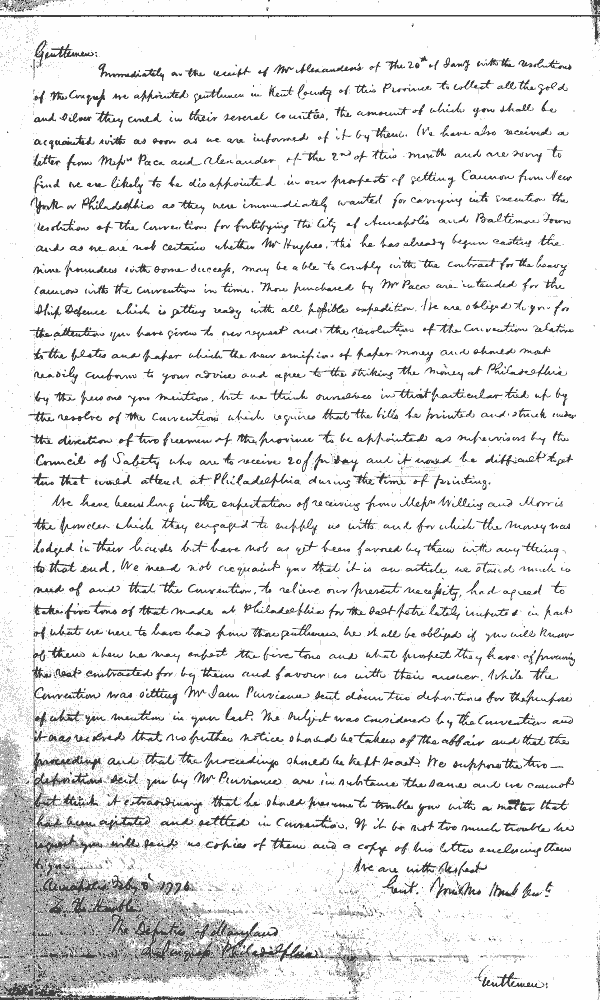 Gentlemen:
Immediately on the receipt of Mr Alexander's of the 20th of Jany with the resolutions
of the Congress we appointed gentlemen in Kent County of this Province to collect all the gold
and silver they could in their several counties, the amount of which you shall be
acquainted with as soon as we are informed of it by them. We have also received a
letter from Messrs Paca and Alexander of the 2nd of this month and are sorry to
find we are likely to be disappointed in our prospects of getting Cannon from New
York or Philadelphia as they were immediately wanted for carrying into execution the
resolution of the Convention for fortifying the City of Annapolis and Baltimore Town
and as we are not certain whether Mr Hughes, tho he has already begun casting the
nine pounders with some success, may be able to comply with the contract for the heavy
cannon with the convention in time. Those purchased by Mr Paca are intended for the
Ship Defence which is getting ready with all possible expedition. We are obliged to you for
the attention you have given to our request and the resolution of the Convention relative
to the plates and paper which the new emission of paper money and should most
readily conform to your advice and agree to the striking the money at Philadelphia
by the persons you mention, but we think ourselves in that particular tied up by
the resolve of the Convention which requires that the bills be printed and struck under
the direction of two freemen of the province to be appointed as supervisors by the
Council of Safety who are to receive 20/ pr day and it would be difficult to get
two that would attend at Philadelphia during the time of printing.
We have been long in the expectation of receiving from Messrs Willing and Morris
the powder which they engaged to supply us with and for which the money was
lodged in their hands but have not as yet been favored by them with any thing
to that end. We need not acquaint you that it is an article we stand much in
need of and that the Convention, to relieve our present necessity, had agreed to
take five tons of that made at Philadelphia for the Salt petre lately imported in part
of what we were to have had from those gentlemen. We shall be obliged if you will know
of them when we may expect the five tons and what prospect they have of procuring
the rest contracted for by them and favour us with their answer. While the
Convention was sitting Mr Sam Purviance sent down two depositions for the purpose
of what you mention in your last. The subject was considered by the Convention and
it was resolved that no further notice should be taken of the affair and that the
proceedings and that the proceedings should be kept secret. We suppose the two
depositions sent you by Mr Purviance are in substance the same and we cannot
but think it extraordinary that he should presume to trouble you with a matter that
had been agitated and settled in Convention. If it be not too much trouble we
request you will send us copies of them and a copy of his letter enclosing them
to you.
We are with respect
Annapolis Feby 6 1776
Gent. Your Mo
To the Honble
The Deputies of Maryland
in Congress Philadelphia
Gentlemen: